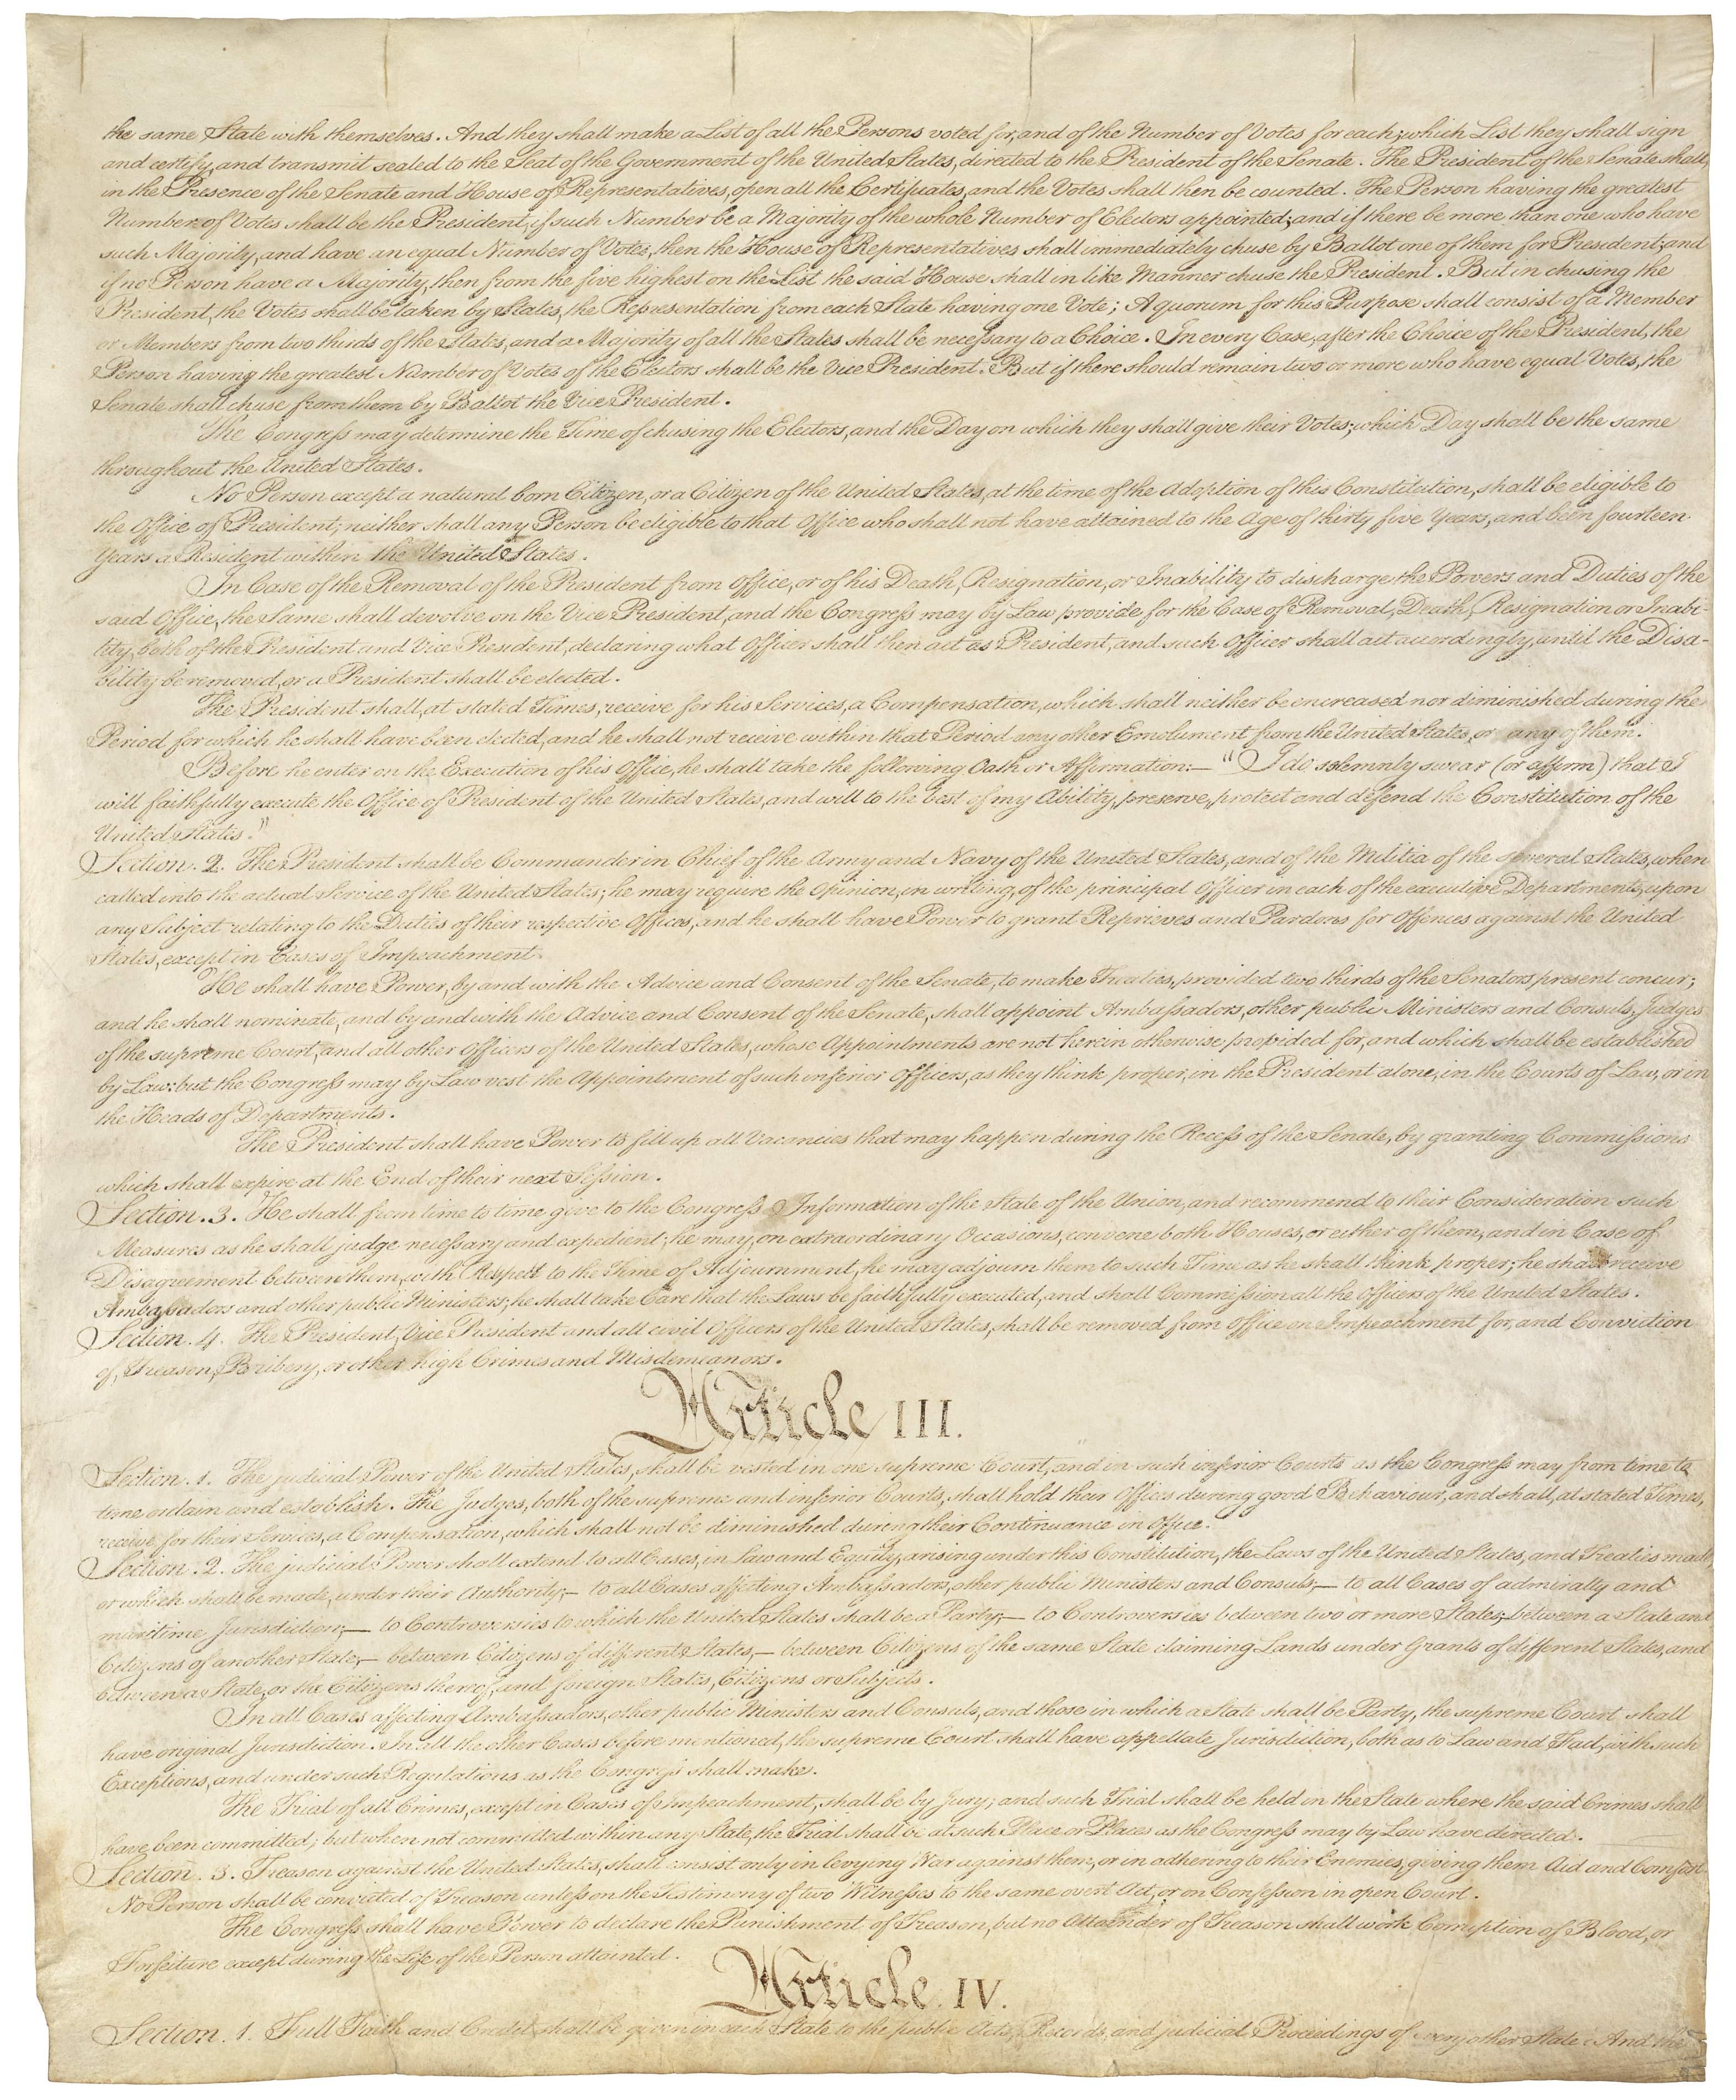 the same State with themselves. And they shall make a List of all the Persons voted for, and of the Number of Votes for each; which List they shall sign
and certify, and transmit sealed to the Seat of the Government of the United States, directed to the President of the Senate. The President of the Senate shall,
in the Presence of the Senate and House of Representatives, open all the Certificates, and the Votes shall then be counted. The Person having the greatest
Number of Votes shall be the President, if such Number be a Majority of the whole Number of Electors appointed; and if there be more than one who have
such Majority, and have an equal Number of Votes, then the House of Representatives shall immediately chuse by Ballot one of them for President; and
if no Person have a Majority, then from the five highest on the List the said House shall in like Manner chuse the President. But in chusing the
President, the Votes shall be taken by States, the Representation from each State having one Vote; A quorum for this Purpose shall consist of a Member
or Members from two thirds of the States, and a Majority of all the States shall be necessary to a Choice. In every Case, after the Choice of the President, the
Person having the greatest Number of Votes of the Electors shall be the Vice President. But if there should remain two or more who have equal Votes, the
Senate shall chuse from them by Ballot the Vice President.
The Congress may determine the Time of chusing the Electors, and the Day on which they shall give their Votes; which Day shall be the same
throughout the United States.
No Person except a natural born Citizen, or a Citizen of the United States, at the time of the Adoption of this Constitution, shall be eligible to
the Office of President; neither shall any Person be eligible to that Office who shall not have attained to the Age of thirty five Years, and been fourteen
Years a Resident within the United States.
In Case of the Removal of the President from Office, or of his Death, Resignation, or Inability to discharge the Powers and Duties of the
said Office, the Same shall devolve on the Vice President, and the Congress may by Law provide for the Case of Removal, Death, Resignation or Inabi-
lity, both of the President and Vice President, declaring what Officer shall then act as President, and such Officer shall act accordingly, until the Disa-
bility be removed, or a President shall be elected.
The President shall, at stated Times, receive for his Services, a Compensation, which shall neither be encreased nor diminished during the
Period for which he shall have been elected, and he shall not receive within that Period any other Emolument from the United States, or any of them.
Before he enter on the Execution of his Office, he shall take the following Oath or Affirmation:— "I do solemnly swear (or affirm) that I
will faithfully execute the Office of President of the United States, and will to the best of my Ability, preserve, protect and defend the Constitution of the
United States."
Section. 2. The President shall be Commander in Chief of the Army and Navy of the United States, and of the Militia of the several States, when
called into the actual Service of the United States; he may require the Opinion, in writing, of the principal Officer in each of the executive Departments, upon
any Subject relating to the Duties of their respective Offices, and he shall have Power to grant Reprieves and Pardons for Offences against the United
States, except in Cases of Impeachment.
He shall have Power, by and with the Advice and Consent of the Senate, to make Treaties, provided two thirds of the Senators present concur;
and he shall nominate, and by and with the Advice and Consent of the Senate, shall appoint Ambassadors, other public Ministers and Consuls, Judges
of the supreme Court, and all other Officers of the United States, whose Appointments are not herein otherwise provided for, and which shall be established
by Law: but the Congress may by Law vest the Appointment of such inferior Officers, as they think proper, in the President alone, in the Courts of Law, or in
the Heads of Departments.
The President shall have Power to fill up all Vacancies that may happen during the Recess of the Senate, by granting Commissions
which shall expire at the End of their next Session.
Section. 3. He shall from time to time give to the Congress Information of the State of the Union, and recommend to their Consideration such
Measures as he shall judge necessary and expedient; he may, on extraordinary Occasions, convene both Houses, or either of them, and in Case of
Disagreement between them, with Respect to the Time of Adjournment, he may adjourn them to such Time as he shall think proper; he shall receive
Ambassadors and other public Ministers; he shall take Care that the Laws be faithfully executed, and shall Commission all the Officers of the United States.
Section. 4. The President, Vice President and all civil Officers of the United States, shall be removed from Office on Impeachment for, and Conviction
of, Treason, Bribery, or other high Crimes and Misdemeanors.
Article III.
Section. 1. The judicial Power of the United States, shall be vested in one supreme Court, and in such inferior Courts as the Congress may from time to
time ordain and establish. The Judges, both of the supreme and inferior Courts, shall hold their Offices during good Behaviour, and shall, at stated Times,
receive for their Services, a Compensation, which shall not be diminished during their Continuance in Office.
Section. 2. The judicial Power shall extend to all Cases, in Law and Equity, arising under this Constitution, the Laws of the United States, and Treaties made,
or which shall be made, under their Authority;— to all Cases affecting Ambassadors, other public Ministers and Consuls;— to all Cases of admiralty and
maritime Jurisdiction;— to Controversies to which the United States shall be a Party;— to Controversies between two or more States;— between a State and
Citizens of another State;— between Citizens of different States,— between Citizens of the same State claiming Lands under Grants of different States, and
between a State, or the Citizens thereof, and foreign States, Citizens or Subjects.
In all Cases affecting Ambassadors, other public Ministers and Consuls, and those in which a State shall be Party, the supreme Court shall
have original Jurisdiction. In all the other Cases before mentioned, the supreme Court shall have appellate Jurisdiction, both as to Law and Fact, with such
Exceptions, and under such Regulations as the Congress shall make.
The Trial of all Crimes, except in Cases of Impeachment, shall be by Jury; and such Trial shall be held in the State where the said Crimes shall
have been committed; but when not committed within any State, the Trial shall be at such Place or Places as the Congress may by Law have directed.
Section. 3. Treason against the United States, shall consist only in levying War against them, or in adhering to their Enemies, giving them Aid and Comfort.
No Person shall be convicted of Treason unless on the Testimony of two Witnesses to the same overt Act, or on Confession in open Court.
The Congress shall have Power to declare the Punishment of Treason, but no Attainder of Treason shall work Corruption of Blood, or
Forfeiture except during the Life of the Person attainted.
Article. IV.
Section. 1. Full Faith and Credit shall be given in each State to the public Acts, Records, and judicial Proceedings of every other State. And the